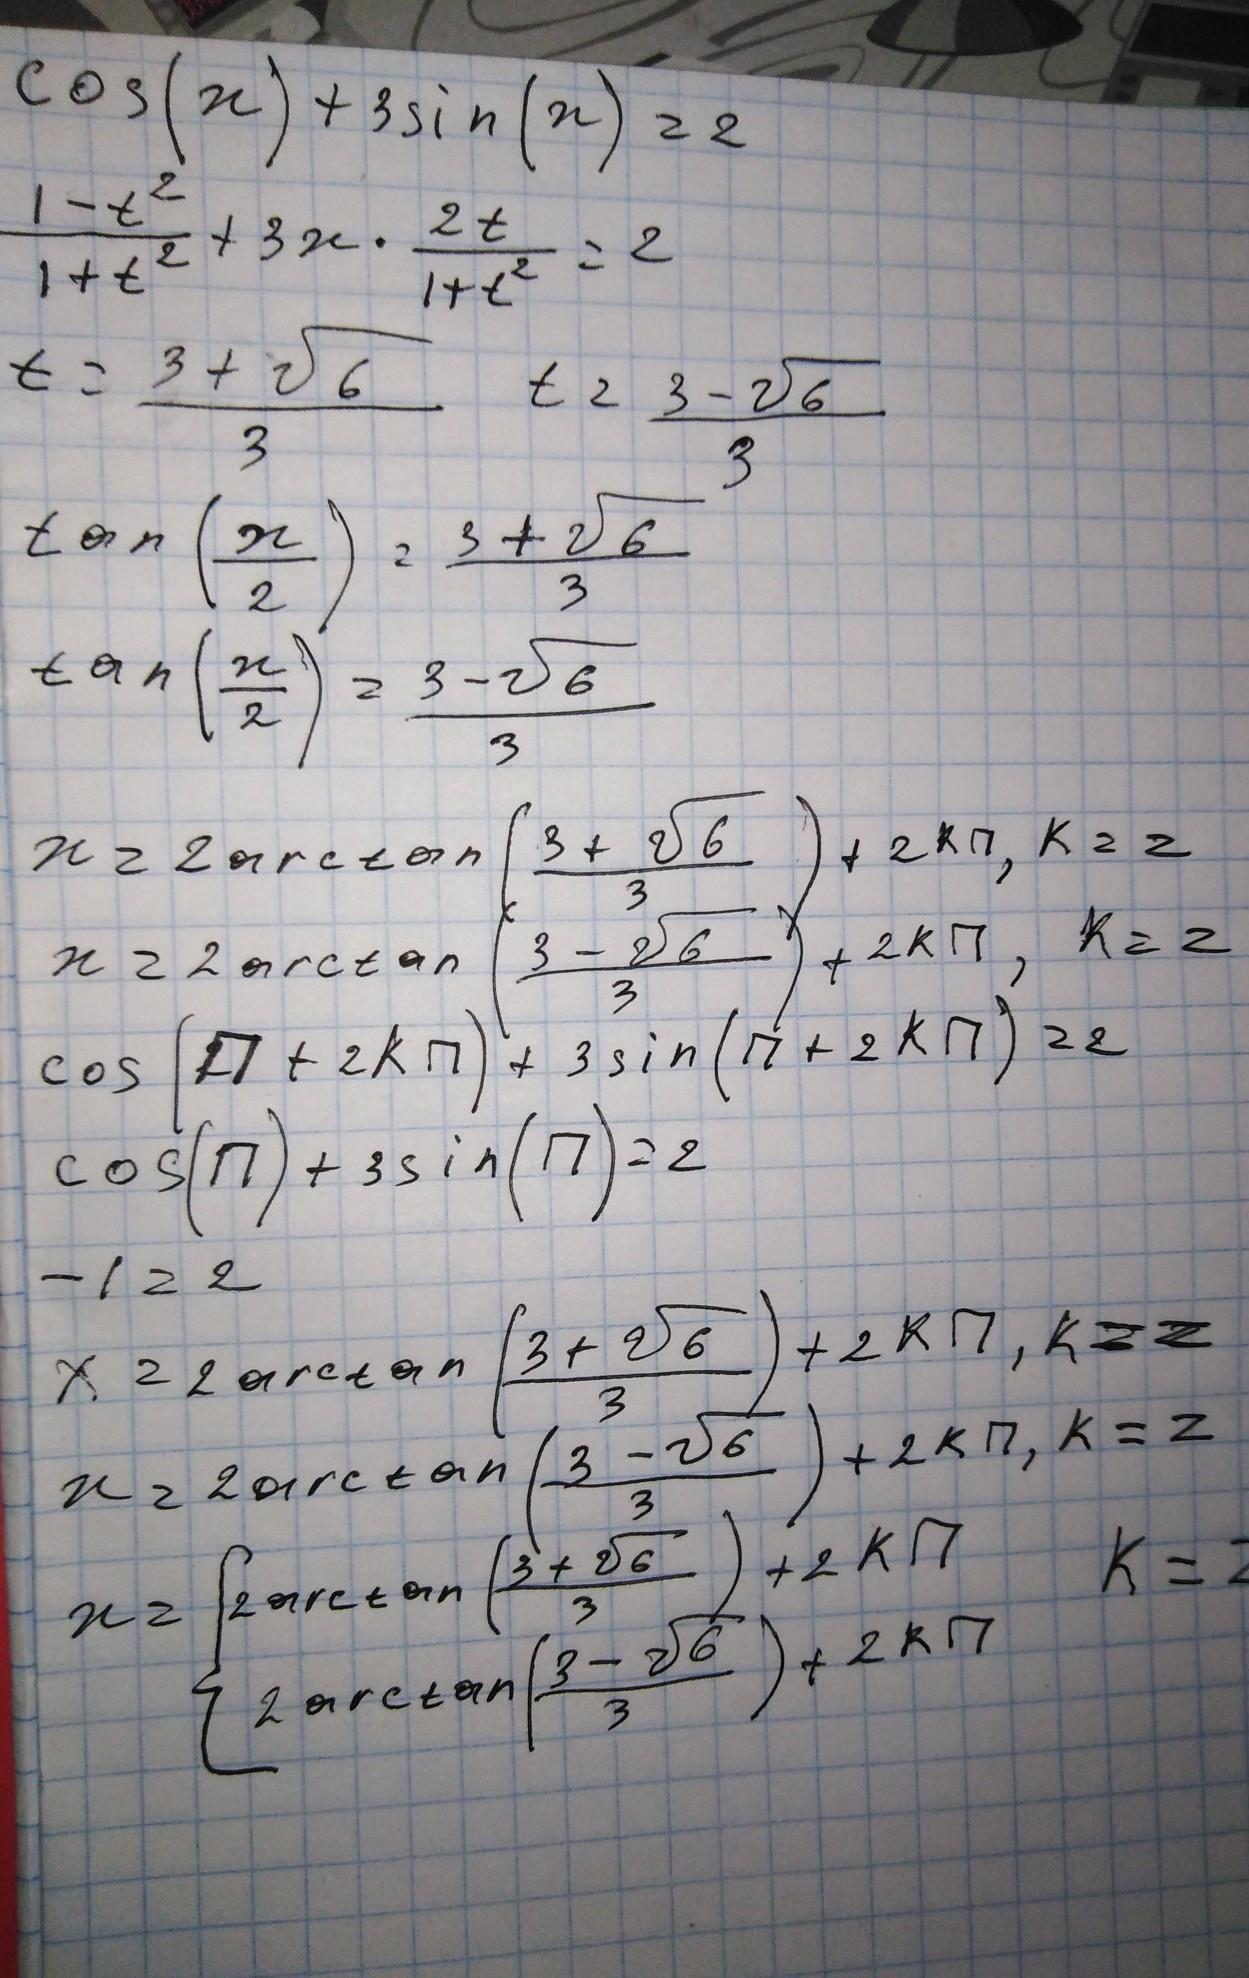 cos(x) + 3sin(x) = 2
(1-t²)/(1+t²) + 3x · 2t/(1+t²) = 2
t = (3+√6)/3 t = (3-√6)/3
tan(x/2) = (3+√6)/3
tan(x/2) = (3-√6)/3
x = 2arctan((3+√6)/3) + 2kπ, k = z
x = 2arctan((3-√6)/3) + 2kπ, k = z
cos(π + 2kπ) + 3sin(π + 2kπ) = 2
cos(π) + 3sin(π) = 2
-1 = 2
x = 2arctan((3+√6)/3) + 2kπ, k = z
x = 2arctan((3-√6)/3) + 2kπ, k = z
x = { 2arctan((3+√6)/3) + 2kπ k = z
2arctan((3-√6)/3) + 2kπ